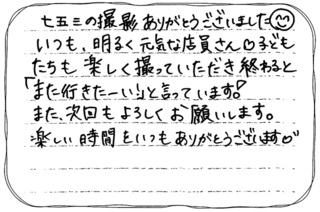 七五三の撮影ありがとうございました☺
いつも、明るく元気な店員さん♡子ども
たちも楽しく撮っていただき終わると
「また行きたーい!」と言っています!
また、次回もよろしくお願いします。
楽しい時間をいつもありがとうございます♡